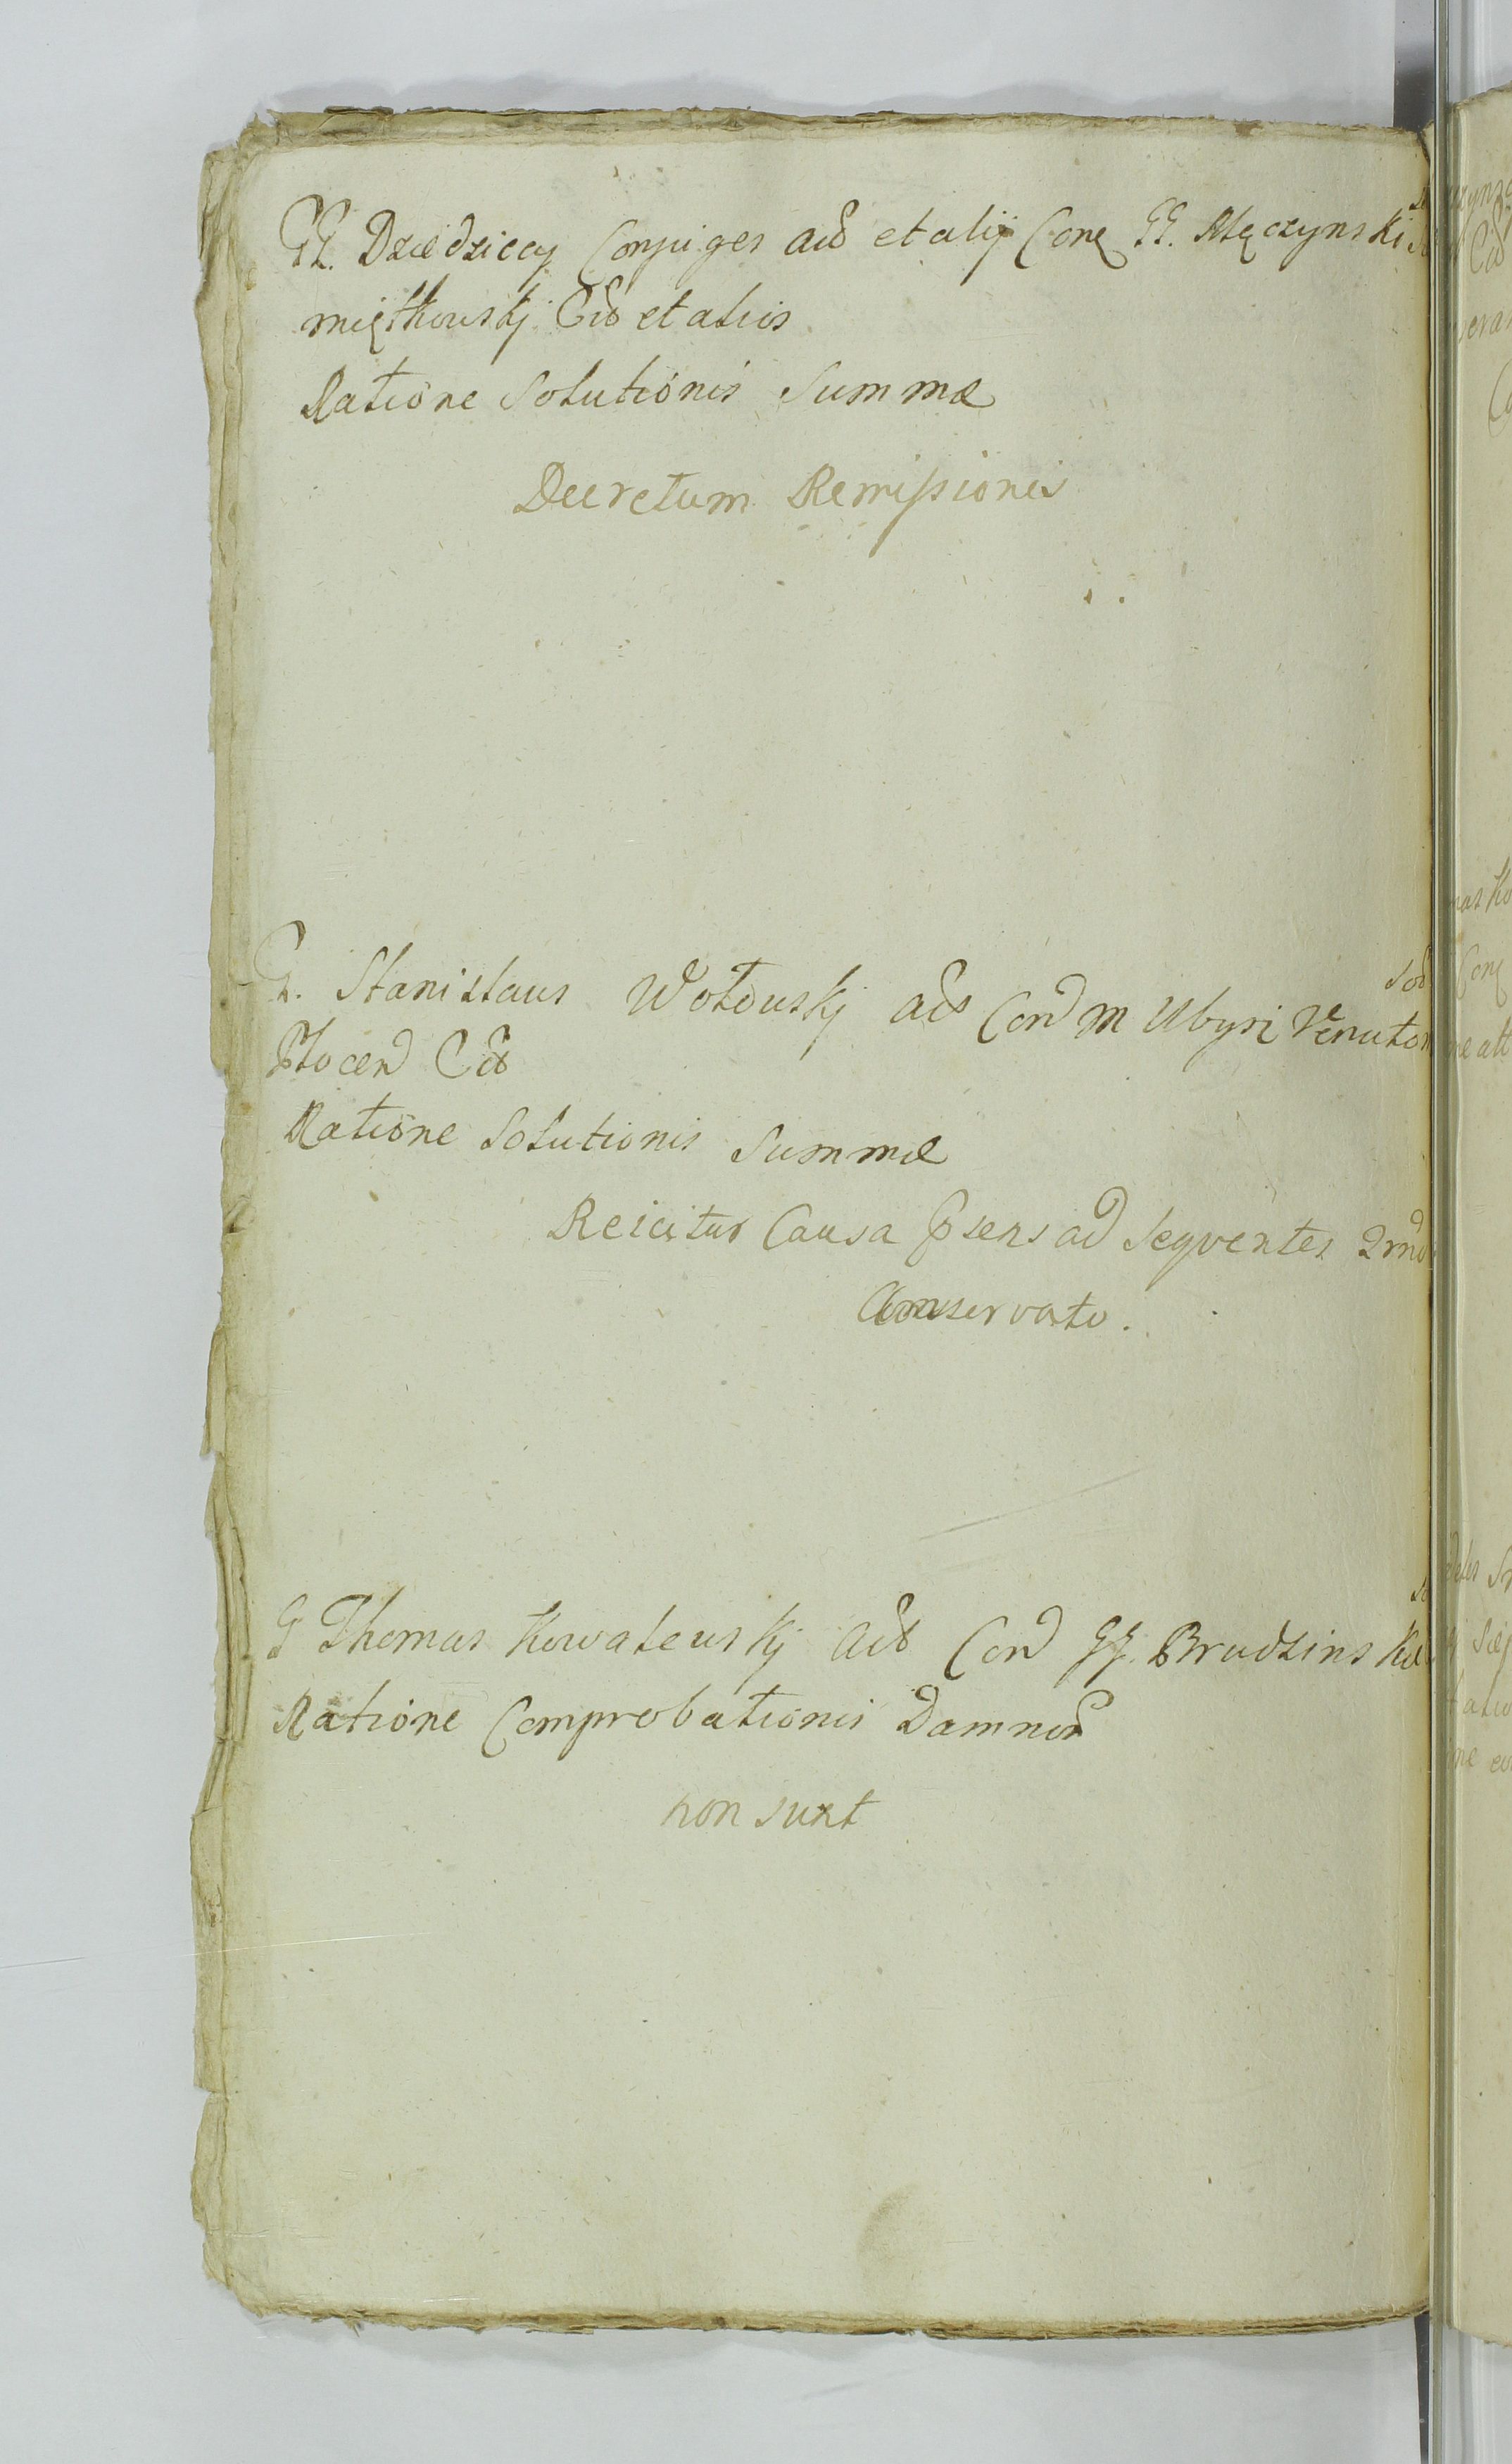 GG. Dziedziccy Conjuges acd et alij Conq GG. Męczynski
miętkowskj Cit et alios
Ratione Solutionis Summæ
Decretum Remissionis
G. Stanislaus Wołowskj acs Cond M Ubysz Venator
Płocen Cit
Ratione Solutionis Summæ
Reicitur Causa psens ad Seqventes
Conservato.
G Thomas Kowalewskj Acd Cond GG. Brudzins
Ratione Comprobationis Damnor
non sunt